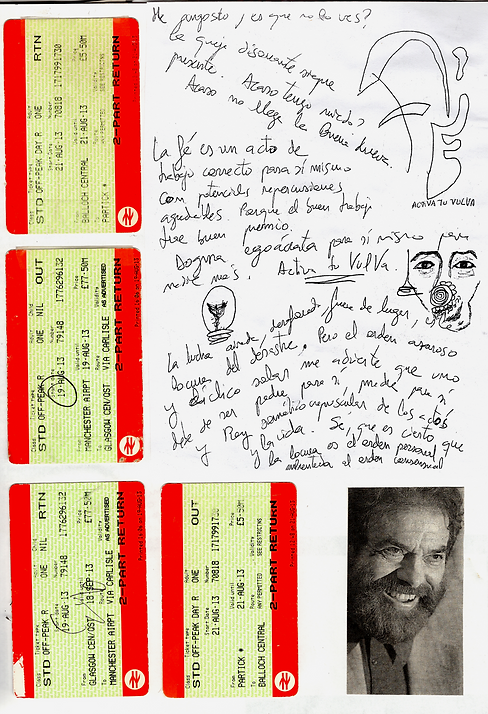 Me angosto, ¿es que no lo ves?
La queja disonante sigue
presente. Acaso tengo miedo?
Acaso no llega la buena nueva.
La fé es un acto de
trabajo correcto para sí mismo
con potenciales repercusiones
agradables. Porque el buen trabajo
trae buen premio.
Dogma egoadicta para sí mismo para
más. Activa tu VulVa.
ACTIVA TU VULVA
La lucha fuera de lugar, y
locura del desastre. Pero el orden
y saber me advierte que uno
debe de ser padre para sí, madre para sí
y Rey de los actos
y la vida. Se, que es cierto que
y la locura es el orden personal
el orden consensual
Class Ticket type Adult Child
STD OFF-PEAK DAY R ONE RTN
Start Date Number
21·AUG·13 70818 1717991730
From Valid until Price
BALLOCH CENTRAL 21·AUG·13 £5·50M
To Route Validity
PARTICK * ANY PERMITTED SEE RESTRICTNS
2-PART RETURN
Class Ticket type Adult Child
STD OFF-PEAK R ONE NIL OUT
Start date Number
19·AUG·13 79148 1776296132
From Valid until Price
MANCHESTER AIRPT 19·AUG·13 £77·50M
To Route Validity
GLASGOW CEN/QST VIA CARLISLE AS ADVERTISED
2-PART RETURN
Class Ticket type Adult Child
STD OFF-PEAK R ONE NIL RTN
Start date Number
19·AUG·13 79148 1776296132
From Valid until Price
GLASGOW CEN/QST 18·SEP·13 £77·50M
To Route Validity
MANCHESTER AIRPT VIA CARLISLE AS ADVERTISED
2-PART RETURN
Class Ticket type Adult Child
STD OFF-PEAK DAY R ONE NIL OUT
Start Date Number
21·AUG·13 70818
From Valid until Price
PARTICK * 21·AUG·13 £5·50M
To Route Validity
BALLOCH CENTRAL ANY PERMITTED SEE RESTRICTNS
2-PART RETURN